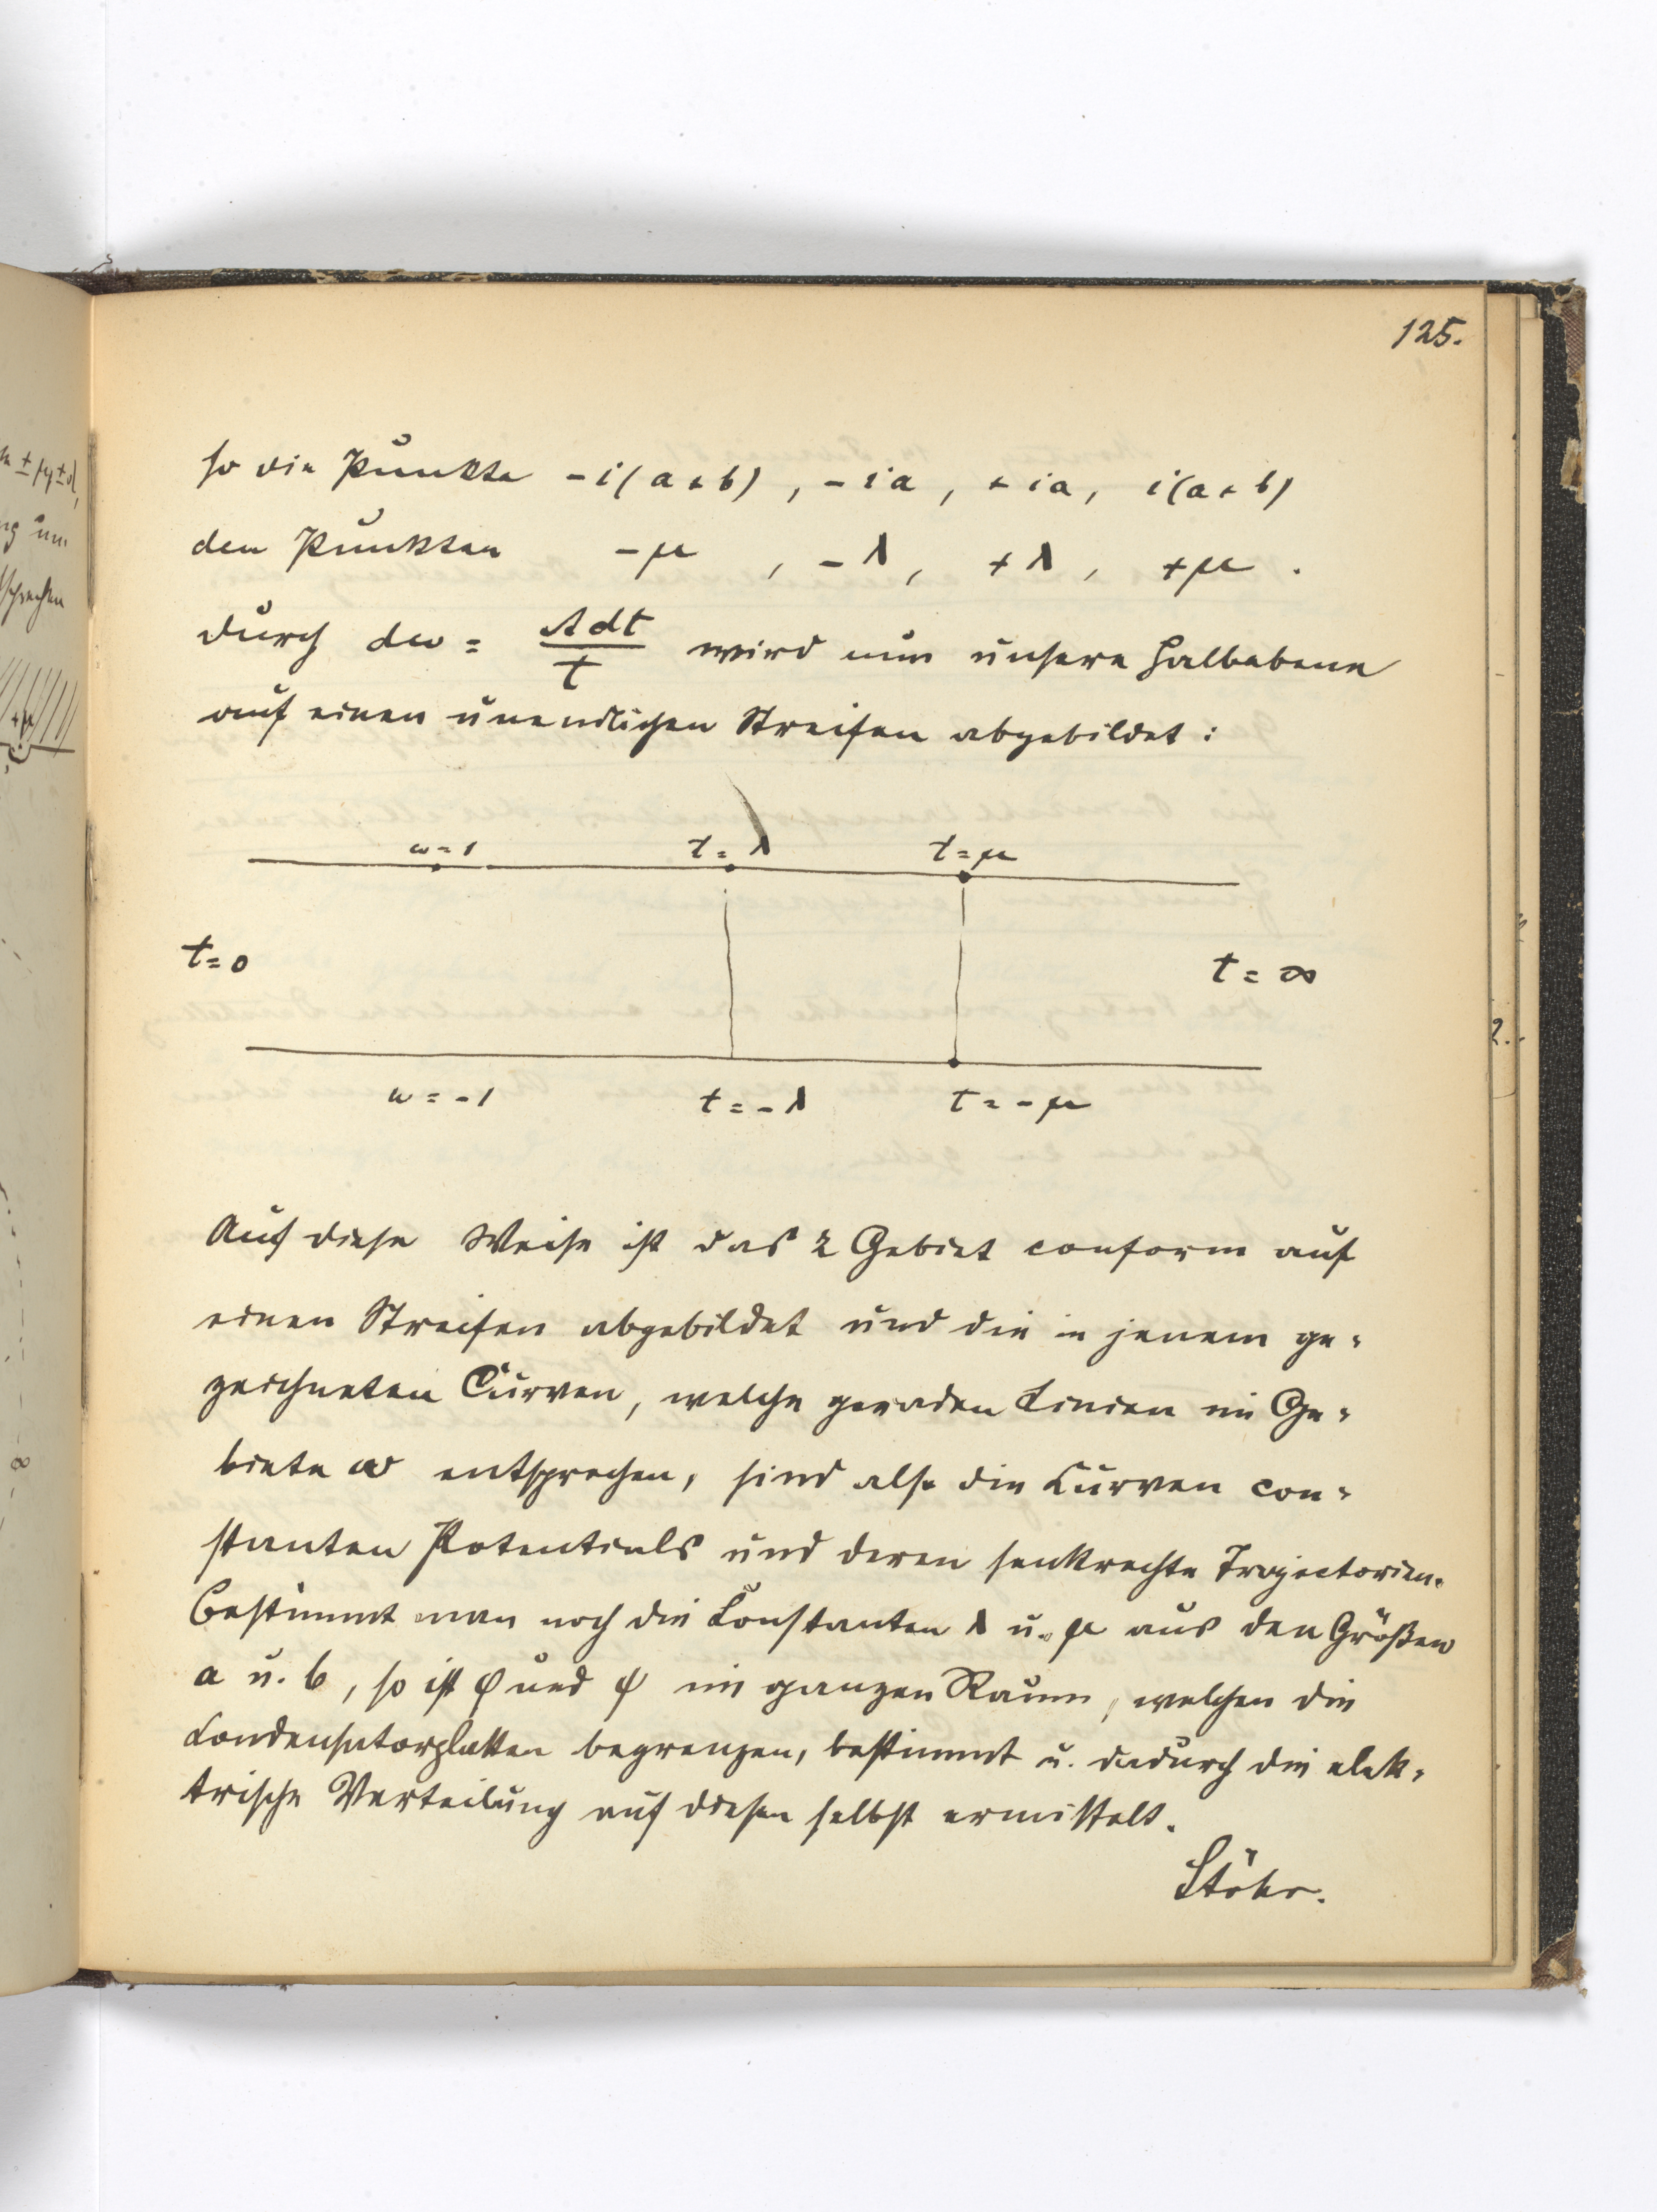 125.
so die Punkte -i(a+b), -ia, +ia, i(a+b)
den Punkten -μ, -λ, +λ, +μ.
Durch dw = A dt / t wird nun unsere Halbebene
auf einen unendlichen Streifen abgebildet:
w=1 t=λ t=μ
t=0 t=∞
w=-1 t=-λ t=-μ
Auf diese Weise ist das z Gebiet conform auf
einen Streifen abgebildet und die in jenem ge-
zeichneten Curven, welche geraden Linien im Ge-
biete w entsprechen, sind also die Curven con-
stanten Potentials und deren senkrechte Trajectorien.
Bestimmt man noch die Constanten λ u. μ aus den Größen
a u. b, so ist φ und ψ im ganzen Raum, welchen die
Condensatorplatten begrenzen, bestimmt u. dadurch die elek-
trische Verteilung auf diesen selbst ermittelt.
Stöhr.